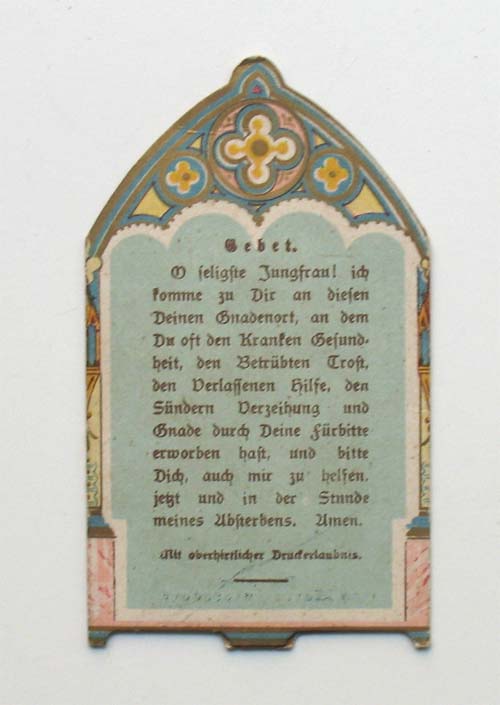 Gebet.
O seligste Jungfrau! ich
komme zu Dir an diesen
Deinen Gnadenort, an dem
Du oft den Kranken Gesund-
heit, den Betrübten Trost,
den Verlassenen Hilfe, den
Sündern Verzeihung und
Gnade durch Deine Fürbitte
erworben hast, und bitte
Dich, auch mir zu helfen.
jetzt und in der Stunde
meines Absterbens. Amen.
Mit oberhirtlicher Druckerlaubnis.